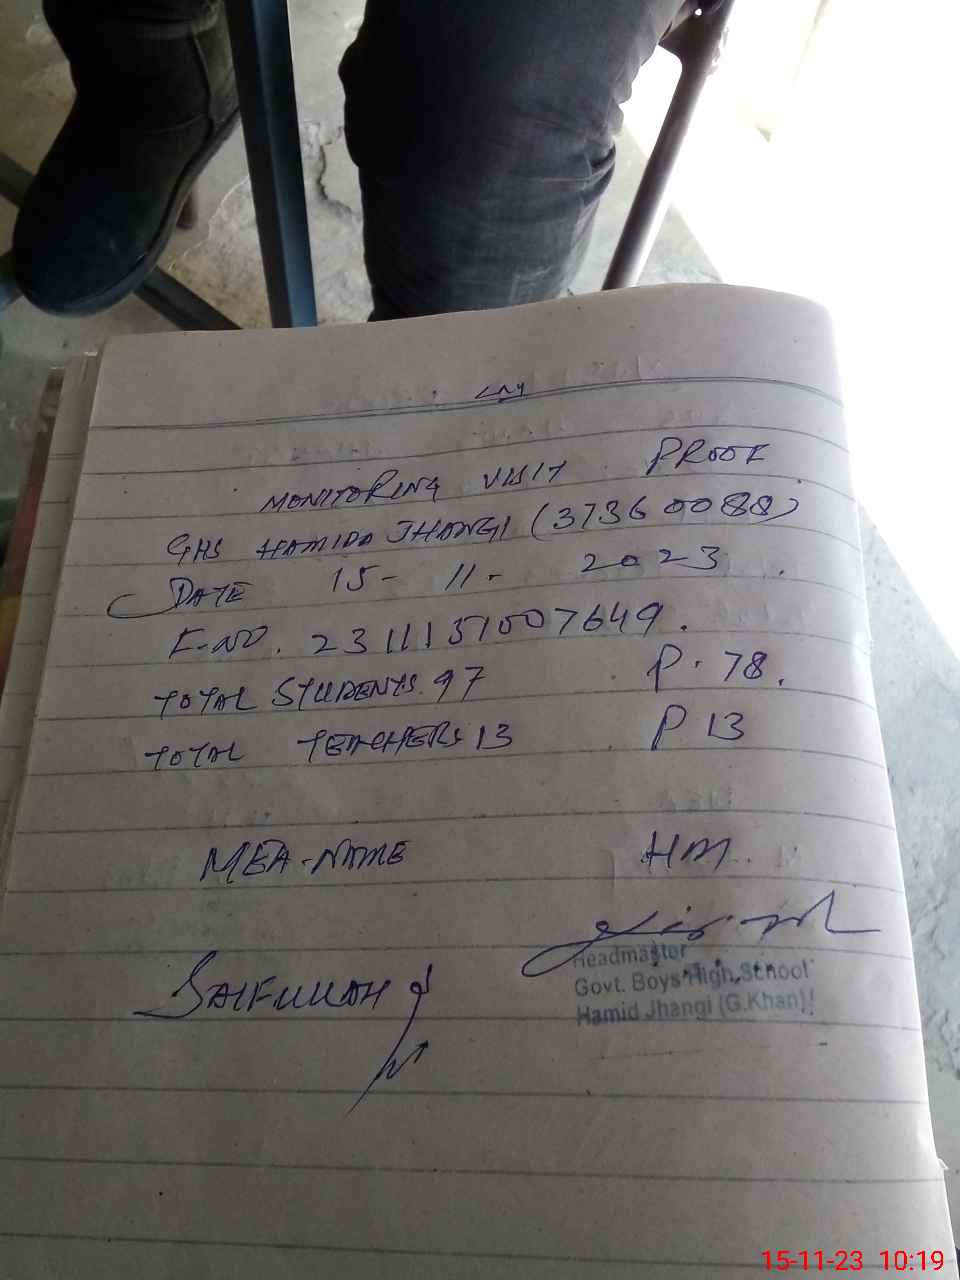 MONITORING VISIT PROOF
GHS HAMIDA JHANGI (37360088)
DATE 15-11-2023
F-NO. 2311151007649.
TOTAL STUDENTS. 97 P. 78.
TOTAL TEACHERS 13 P 13
MEA-NAME HM.
SAIFULLAH
Headmaster
Govt. Boys High School
Hamid Jhangi (G.Khan)
15-11-23 10:19